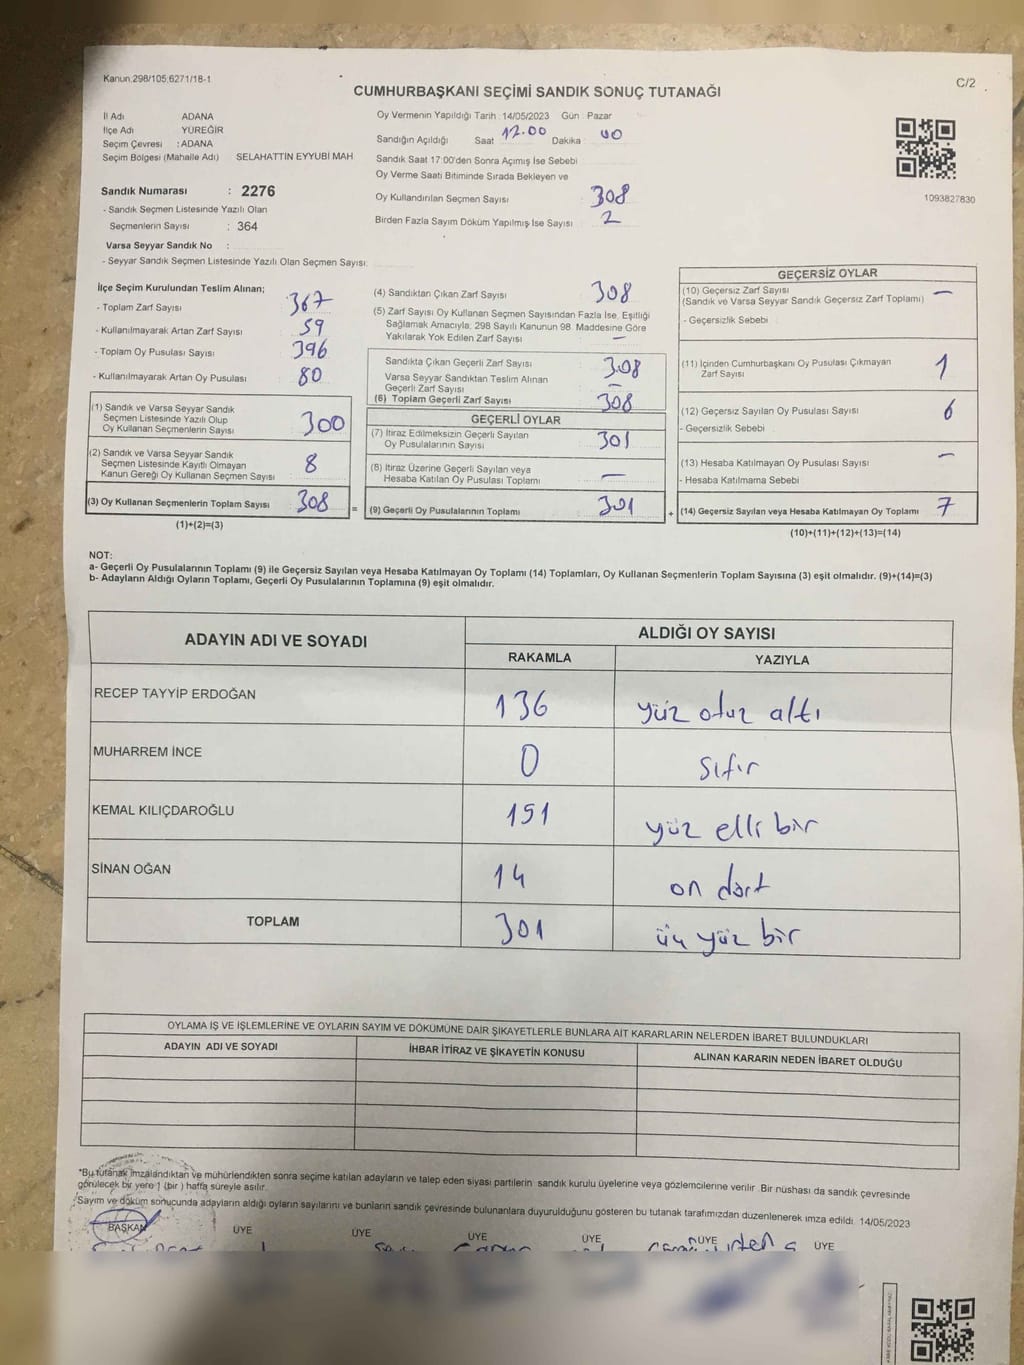 Kanun.298/105,6271/18-1
C/2
CUMHURBAŞKANI SEÇİMİ SANDIK SONUÇ TUTANAĞI
İl Adı ADANA
İlçe Adı YÜREĞİR
Seçim Çevresi : ADANA
Seçim Bölgesi (Mahalle Adı) SELAHATTİN EYYUBİ MAH
Sandık Numarası : 2276
- Sandık Seçmen Listesinde Yazılı Olan
Seçmenlerin Sayısı : 364
Varsa Seyyar Sandık No :
- Seyyar Sandık Seçmen Listesinde Yazılı Olan Seçmen Sayısı:
Oy Vermenin Yapıldığı Tarih : 14/05/2023 Gün : Pazar
Sandığın Açıldığı Saat 17.00 Dakika 00
Sandık Saat 17:00'den Sonra Açımış İse Sebebi
Oy Verme Saati Bitiminde Sırada Bekleyen ve
Oy Kullandırılan Seçmen Sayısı : 308
Birden Fazla Sayım Döküm Yapılmış İse Sayısı : 2
1093827830
İlçe Seçim Kurulundan Teslim Alınan;
- Toplam Zarf Sayısı : 367
- Kullanılmayarak Artan Zarf Sayısı : 59
- Toplam Oy Pusulası Sayısı : 396
- Kullanılmayarak Artan Oy Pusulası : 80
(1) Sandık ve Varsa Seyyar Sandık
Seçmen Listesinde Yazılı Olup
Oy Kullanan Seçmenlerin Sayısı : 300
(2) Sandık ve Varsa Seyyar Sandık
Seçmen Listesinde Kayıtlı Olmayan
Kanun Gereği Oy Kullanan Seçmen Sayısı : 8
(3) Oy Kullanan Seçmenlerin Toplam Sayısı : 308
(1)+(2)=(3)
(4) Sandıktan Çıkan Zarf Sayısı : 308
(5) Zarf Sayısı Oy Kullanan Seçmen Sayısından Fazla İse, Eşitliği
Sağlamak Amacıyla; 298 Sayılı Kanunun 98. Maddesine Göre
Yakılarak Yok Edilen Zarf Sayısı : —
Sandıkta Çıkan Geçerli Zarf Sayısı : 308
Varsa Seyyar Sandıktan Teslim Alınan
Geçerli Zarf Sayısı : —
(6) Toplam Geçerli Zarf Sayısı : 308
GEÇERLİ OYLAR
(7) İtiraz Edilmeksizin Geçerli Sayılan
Oy Pusulalarının Sayısı : 301
(8) İtiraz Üzerine Geçerli Sayılan veya
Hesaba Katılan Oy Pusulası Toplamı : —
= (9) Geçerli Oy Pusulalarının Toplamı : 301
GEÇERSİZ OYLAR
(10) Geçersiz Zarf Sayısı : —
(Sandık ve Varsa Seyyar Sandık Geçersiz Zarf Toplamı)
- Geçersizlik Sebebi
(11) İçinden Cumhurbaşkanı Oy Pusulası Çıkmayan
Zarf Sayısı : 1
(12) Geçersiz Sayılan Oy Pusulası Sayısı : 6
- Geçersizlik Sebebi
(13) Hesaba Katılmayan Oy Pusulası Sayısı : —
- Hesaba Katılmama Sebebi
+ (14) Geçersiz Sayılan veya Hesaba Katılmayan Oy Toplamı : 7
(10)+(11)+(12)+(13)=(14)
NOT:
a- Geçerli Oy Pusulalarının Toplamı (9) ile Geçersiz Sayılan veya Hesaba Katılmayan Oy Toplamı (14) Toplamları, Oy Kullanan Seçmenlerin Toplam Sayısına (3) eşit olmalıdır. (9)+(14)=(3)
b- Adayların Aldığı Oyların Toplamı, Geçerli Oy Pusulalarının Toplamına (9) eşit olmalıdır.
ADAYIN ADI VE SOYADI
ALDIĞI OY SAYISI
RAKAMLA YAZIYLA
RECEP TAYYİP ERDOĞAN 136 yüz otuz altı
MUHARREM İNCE 0 sıfır
KEMAL KILIÇDAROĞLU 151 yüz elli bir
SİNAN OĞAN 14 on dört
TOPLAM 301 üç yüz bir
OYLAMA İŞ VE İŞLEMLERİNE VE OYLARIN SAYIM VE DÖKÜMÜNE DAİR ŞİKAYETLERLE BUNLARA AİT KARARLARIN NELERDEN İBARET BULUNDUKLARI
ADAYIN ADI VE SOYADI İHBAR İTİRAZ VE ŞİKAYETİN KONUSU ALINAN KARARIN NEDEN İBARET OLDUĞU
*Bu tutanak imzalandıktan ve mühürlendikten sonra seçime katılan adayların ve talep eden siyasi partilerin sandık kurulu üyelerine veya gözlemcilerine verilir. Bir nüshası da sandık çevresinde
görülecek bir yere 1 (bir) hafta süreyle asılır.
Sayım ve döküm sonucunda adayların aldığı oyların sayılarını ve bunların sandık çevresinde bulunanlara duyurulduğunu gösteren bu tutanak tarafımızdan düzenlenerek imza edildi. 14/05/2023
BAŞKAN ÜYE ÜYE ÜYE ÜYE ÜYE ÜYE